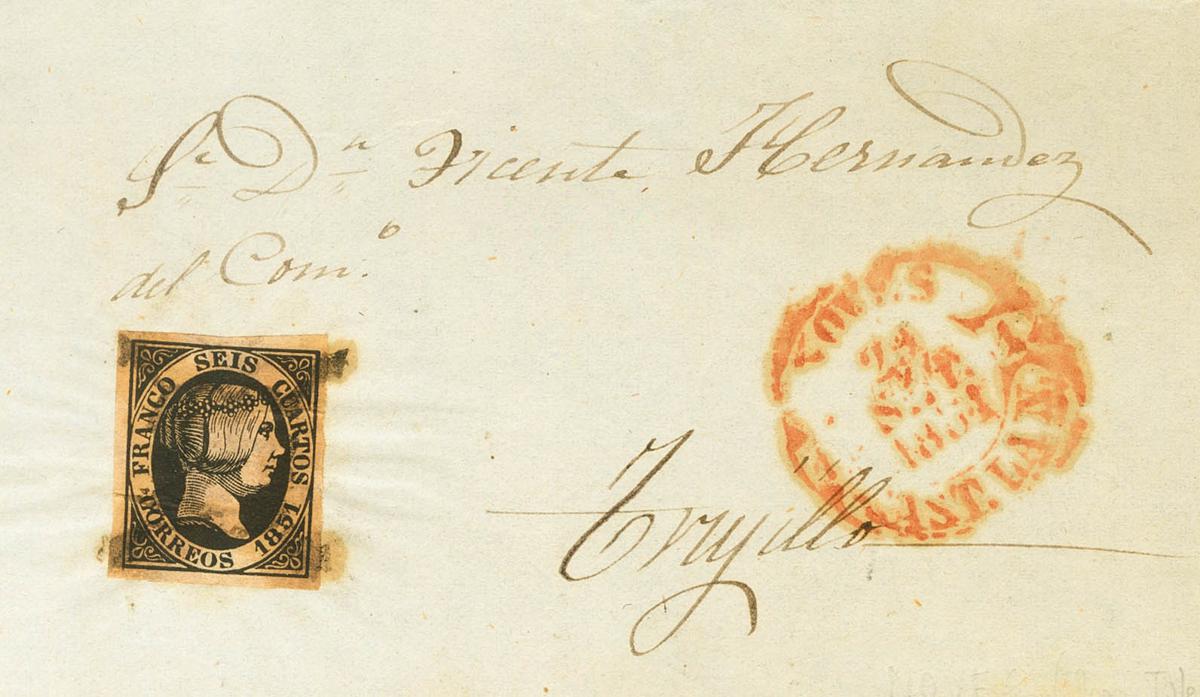 Sr Dn Vicente Hernandez
del Como
FRANCO SEIS CUARTOS
CORREOS 1851
1851
Trujillo